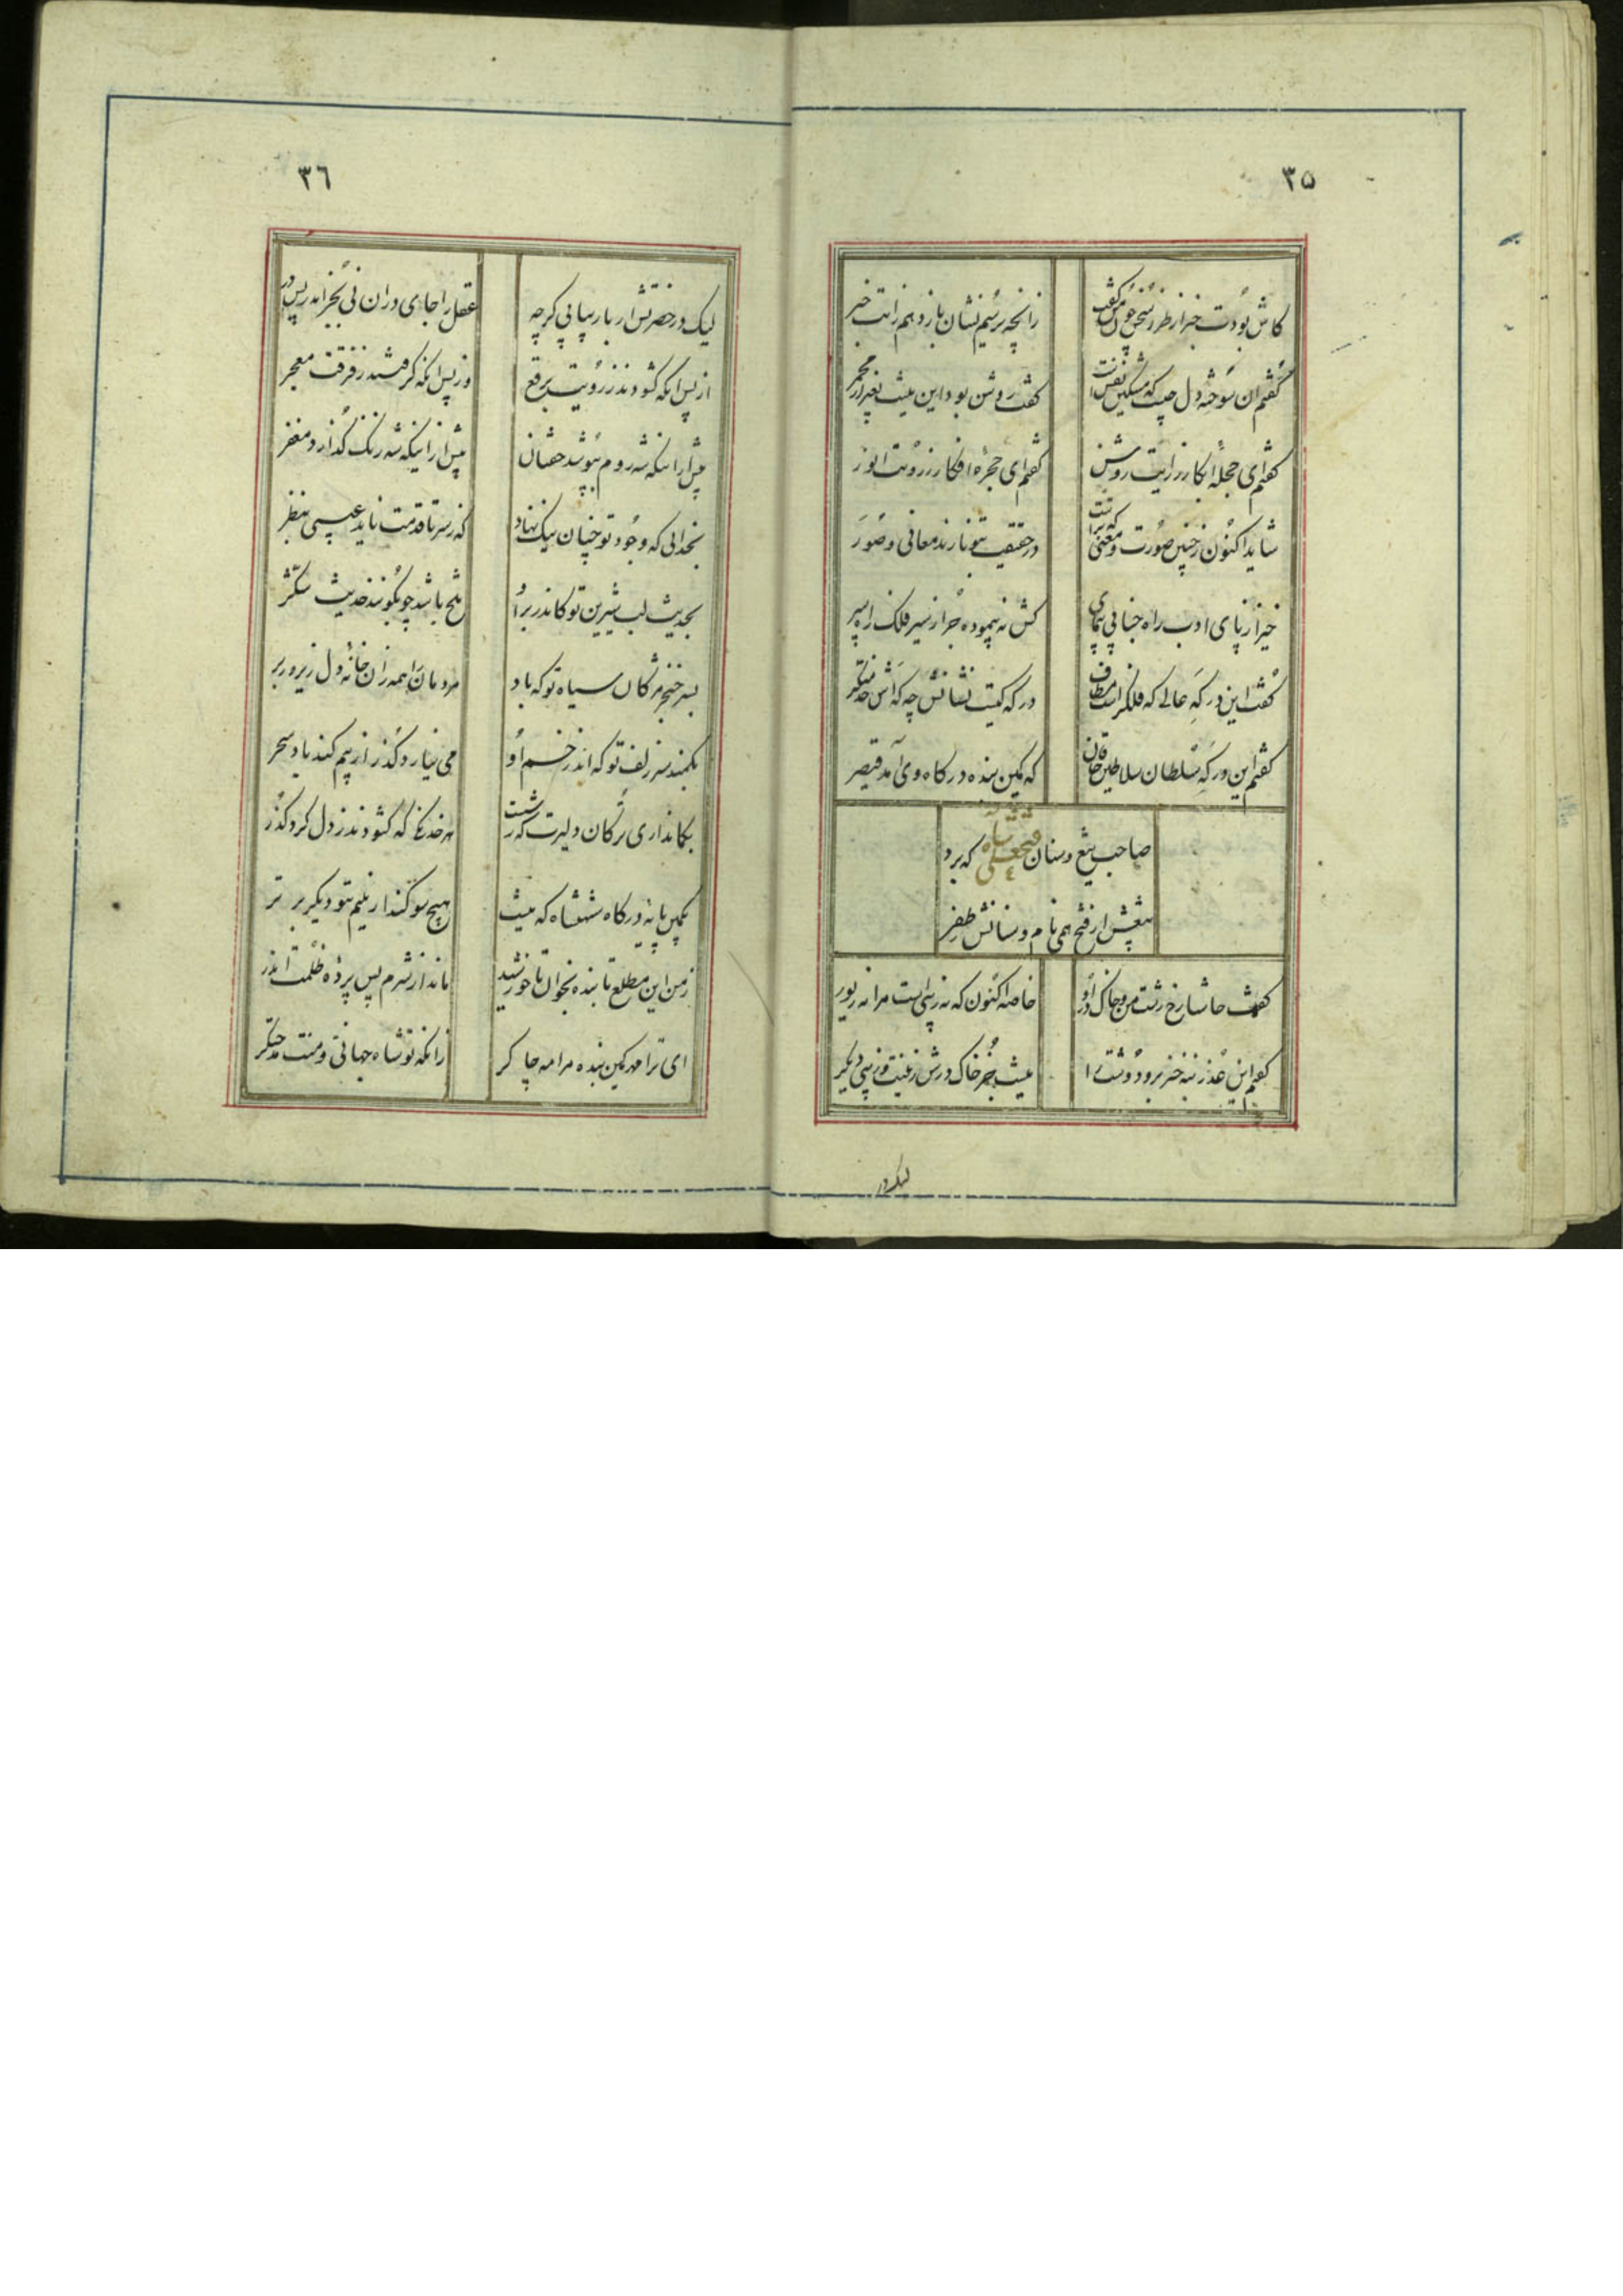 ۳۵
کاش بودت خبر از طرز سخن چون گفت
زانچه پرسیم نشان باز دهم زانت خبر
گفتم ان سوخته دل چیست که مشکین نفس است
گفت روشن بود این نیست بغیر از مجمر
گفتم ای حجلهٔ ابکار ز رایت روشن
گفتم ای حجرهٔ افکار ز رویت انور
شاید اکنون ز چنین صورت و معنی که تراست
در حقیقت بتو نازند معانی و صور
خیز از پای ادب راه جنابی پیمای
کش نه پیموده جز از سیر فلک راه سپر
گفت این درگه عالی که فلک راست مطاف
درگه کیست نشانش چه که اش مدحتگر
گفتم این درگه سلطان سلاطین خاقان
که کمین بنده درگاه وی آمد قیصر
صاحب تیغ و سنان فتحعلی شاه که برد
تیغش از فتح همی نام و سنانش ز ظفر
گفت حاشا رخ زشت من و خاک در او
خاصه اکنون که نه زیبی است مرا نه زیور
گفتم این عذر بنه خیز برو رو زشت را
نیست جز خاک درش زینت و زیبی دیگر
لیک در
۳۶
لیک در حضرتش ار بار بیابی گرچه
عقل را جای دران نی بجز اندر پس در
از پس انکه گشودند ز رویت برقع
وز پس انکه گرفتند ز فرقت معجر
پیش از اینکه شه روم بپوشد خفتان
پیش از اینکه شه زنگ گذارد مغفر
بخدائی که وجود تو چنان نیک نهاد
که ز سر تا قدمت ناید عیبی بنظر
بحدیث لب شیرین تو کاندر بر او
تلخ باشد چو بگویند حدیث شکر
بسر خنجر مژگان سیاه تو که باد
مردمان را همه زان خانهٔ دل زیر و زبر
بکمند سر زلف تو که اندر خم او
می نیارد گذر از بیم کند باد سحر
بکمانداری ترکان دلیرت که ز شست
هر خدنگ که گشودند ز دل کرد گذر
بکمین پایهٔ درگاه شهنشاه که نیست
هیچ سوگند ازینم بتو دیگر برتر
ز من این مطلع تابنده بخوان تا خورشید
ماند از شرم پس پردهٔ ظلمت اندر
ای ترا مهر کمین بنده مرا مه چاکر
زانکه تو شاه جهانی و منت مدحتگر